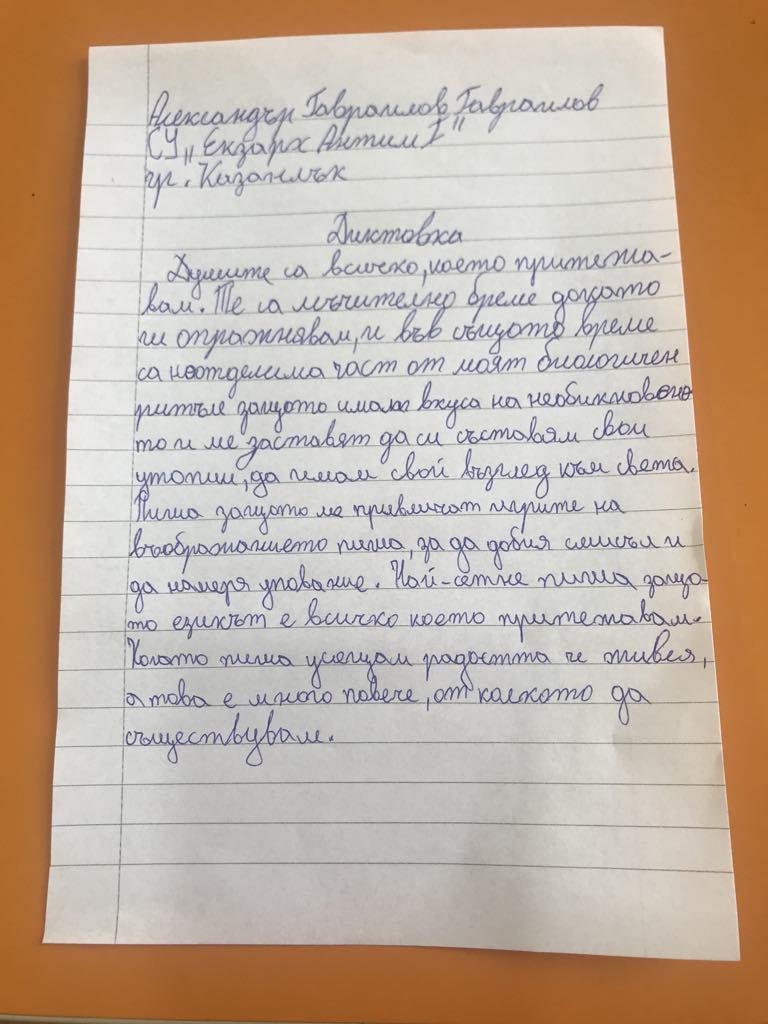 Александър Гавраилов Гавраилов
СУ „Екзарх Антим I"
гр. Казанлък
Диктовка
Думите са всичко, което притежа-
вам. Те са мъчително бреме докато
ги опражнявам, и във същото време
са неотделима част от моят биологичен
ритъм защото имат вкуса на необикновено
то и ме заставят да си съставям свои
утопии, да имам свой възглед към света.
Пиша защото ме привличат игрите на
въображението пиша, за да добия смисъл и
да намеря упование. Най-сетне пиша защо-
то езикът е всичко което притежавам.
Когато пиша усещам радостта че живея,
а това е много повече, от колкото да
съществувам.